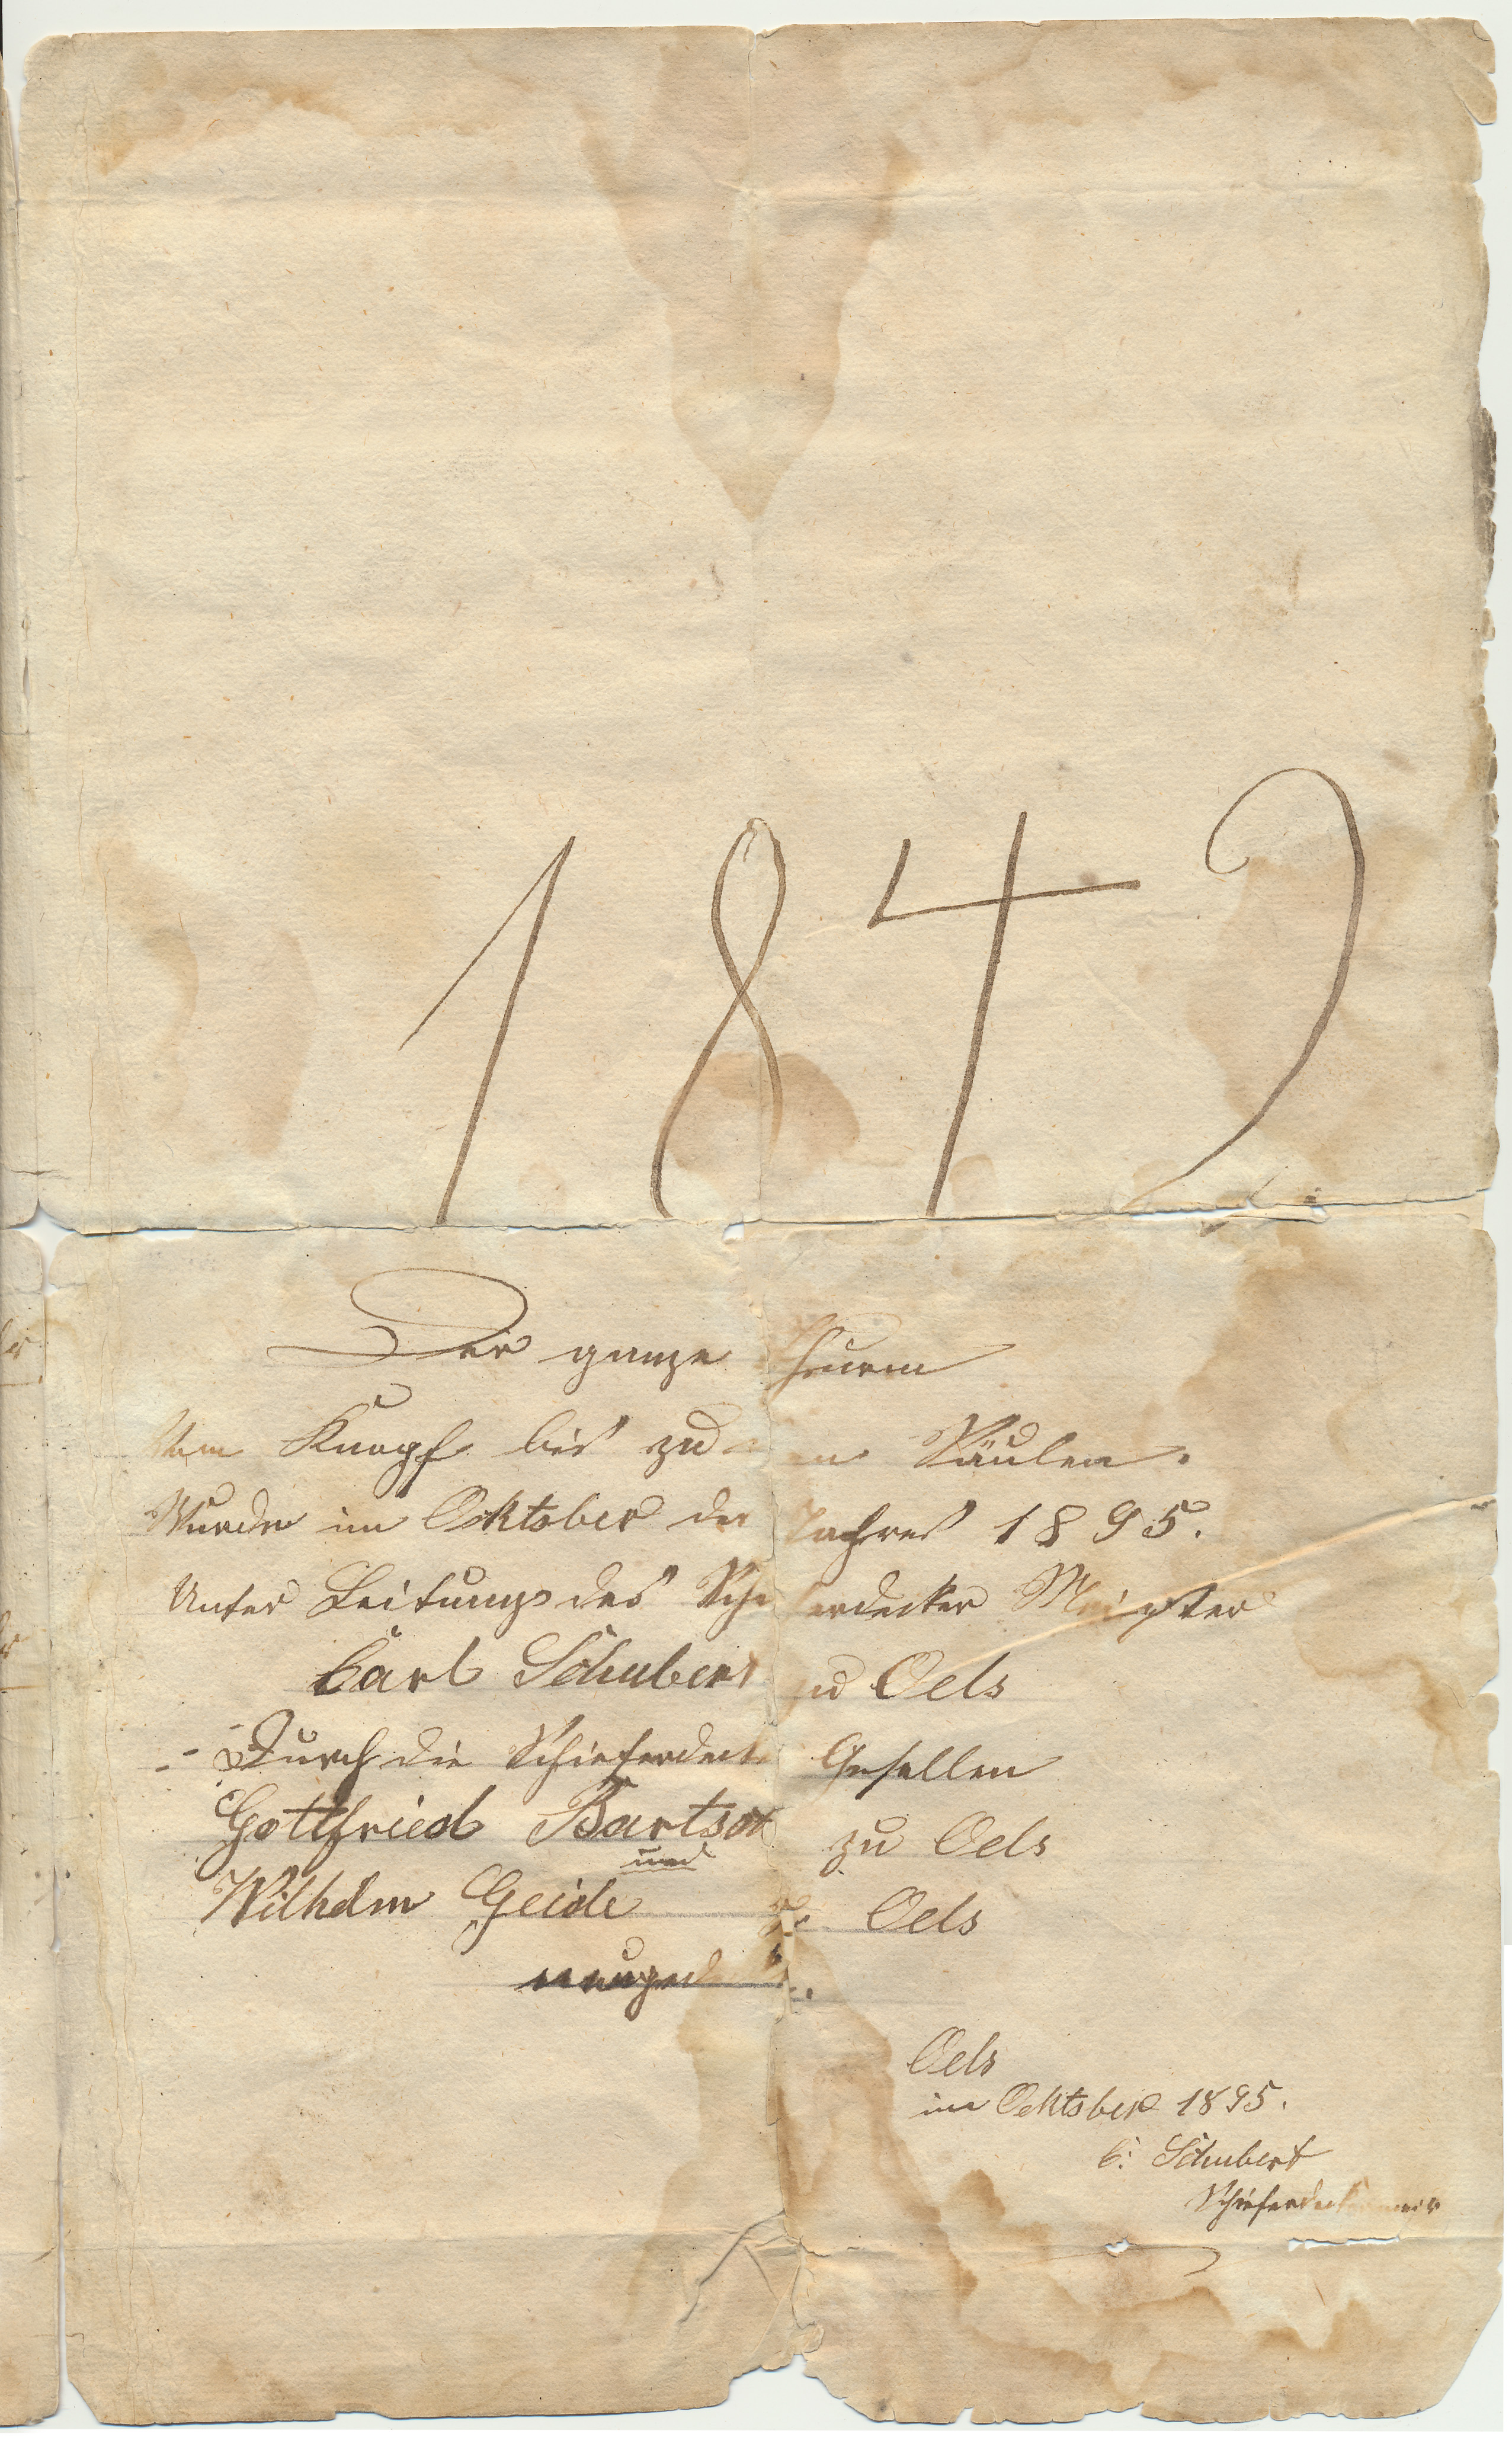 1842
Der ganze Thurm
Vom Knopf bis zu den Säulen.
Wurde im Ocktober des Jahres 1895.
Unter Leitung des Schieferdecker Meister
Carl Schubert zu Oels
Durch die Schieferdecker Gesellen
Gottfried Bartsch zu Oels
und
Wilhelm Geide zu Oels
neuged
Oels
im Ocktober 1895.
C. Schubert
Schieferdeckermeis